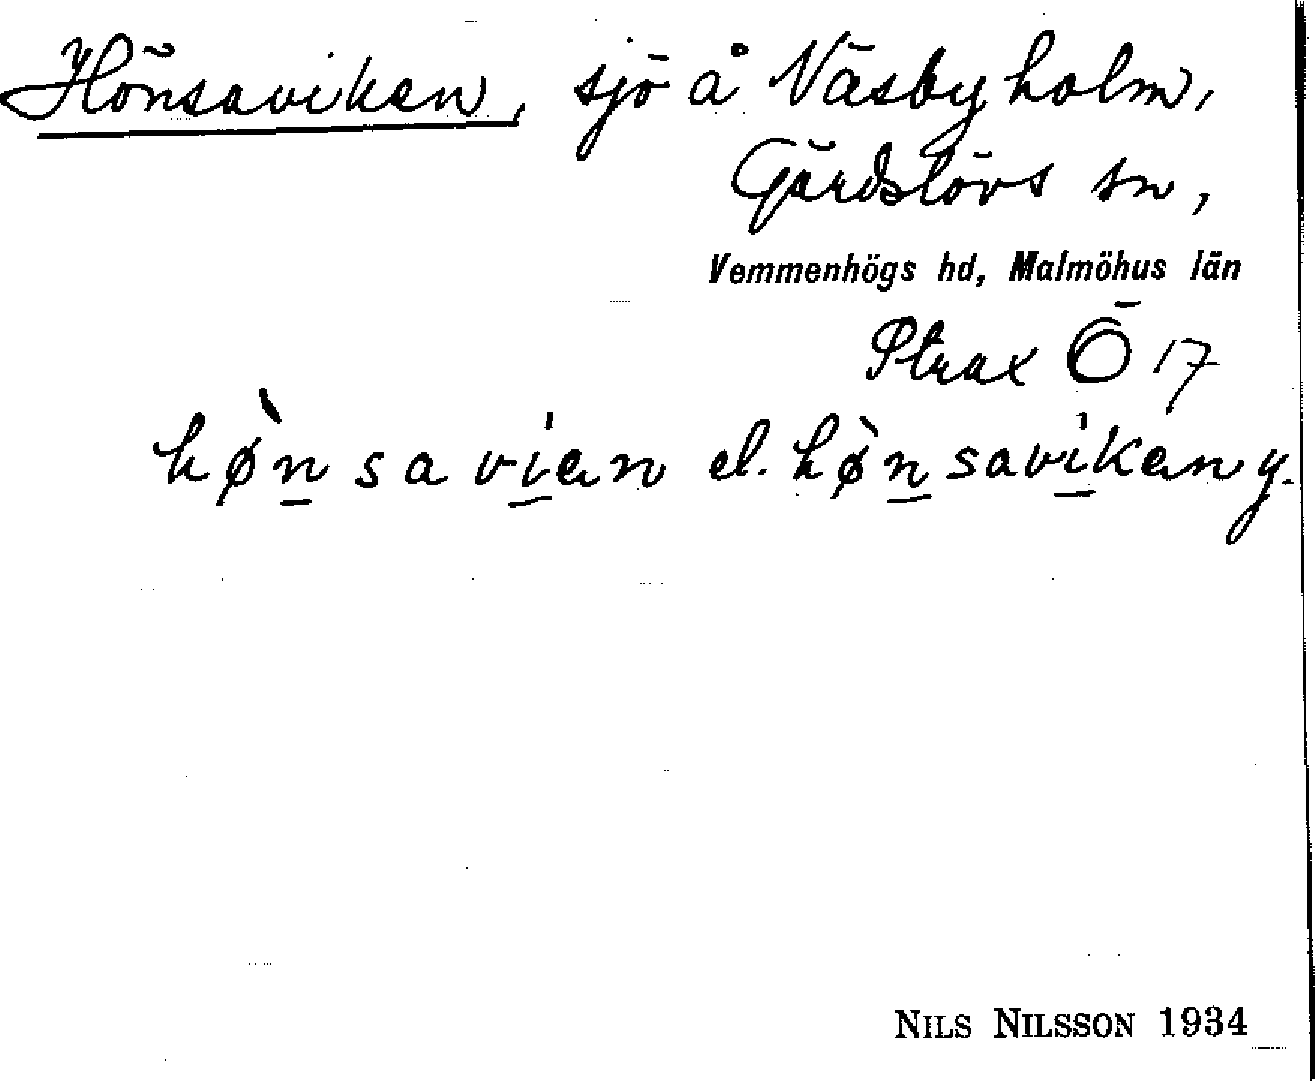 Hönsaviken, sjö å Näsbyholm,
Gärdslövs sn,
Vemmenhögs hd, Malmöhus län
Strax Ö 17
hø̀n̲savi̲en el. hø̀n̲savi̲ken y.
NILS NILSSON 1934